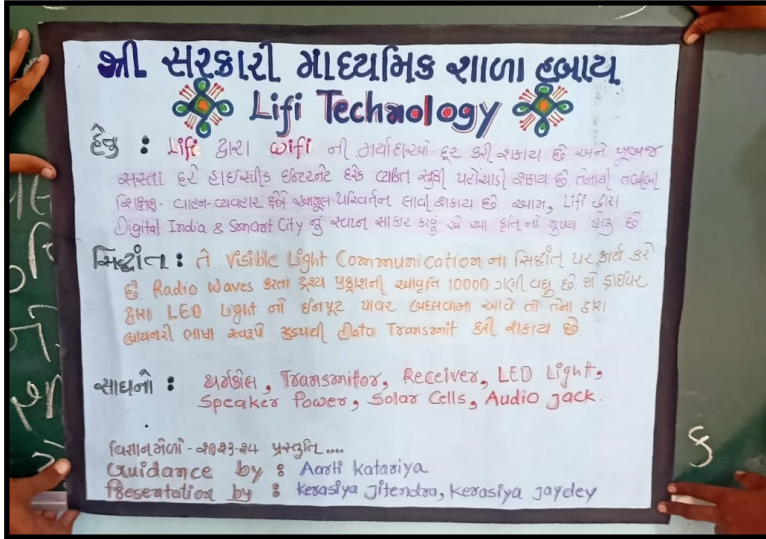 શ્રી સરકારી માધ્યમિક શાળા હબાય
Lifi Technology
હેતુ : Lifi દ્વારા wifi ની મર્યાદાઓ દૂર કરી શકાય છે અને ખૂબજ
સસ્તા દરે હાઈસ્પીડ ઈન્ટરનેટ દરેક વ્યક્તિ સુધી પહોંચાડી શકાય છે. તેનાથી તબીબી
શિક્ષણ- વાહન-વ્યવહાર ક્ષેત્રે આમૂલ પરિવર્તન લાવી શકાય છે. આમ, Lifi દ્વારા
Digital India & Smart City નું સ્વપ્ન સાકાર કરવું એ આ કૃતિ નો મુખ્ય હેતુ છે
સિદ્ધાંત : તે Visible Light Communication ના સિદ્ધાંત પર કાર્ય કરે
છે. Radio Waves કરતા દ્રશ્ય પ્રકાશની આવૃતિ 10000 ગણી વધુ છે. જો ડ્રાઈવર
દ્વારા LED Light નો ઈનપૂટ પાવર બદલવામા આવે તો તેના દ્વારા
બાયનરી ભાષા સ્વરૂપે ઝડપથી Data Transmit કરી શકાય છે.
સાધનો : થર્મોકોલ, Transmitor, Receiver, LED Light,
Speaker Power, Solar Cells, Audio Jack.
વિજ્ઞાનમેળો - ૨૦૨૩-૨૪ પ્રસ્તુતિ ....
Guidance by : Aarti Katariya
Presentation by : Kerasiya Jitendra, Kerasiya Jaydev